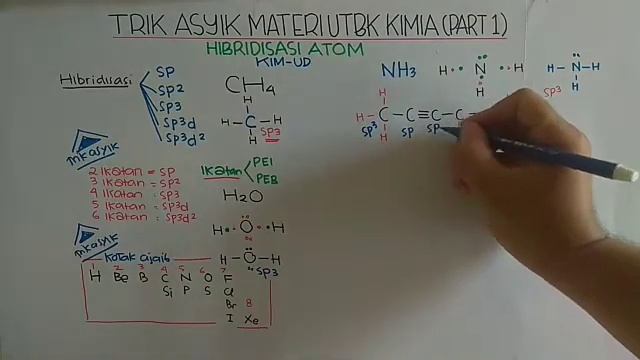 TRIK ASYIK MATERI UTBK KIMIA (PART 1)
HIBRIDISASI ATOM
KIM-UD
Hibridisasi
SP
SP2
SP3
SP3d
SP3d2
CH4
H
H-C-H
H
SP3
TriKasyik
2 Ikatan = SP
3 Ikatan = SP2
4 Ikatan = SP3
5 Ikatan = SP3d
6 Ikatan = SP3d2
IKatan
PEI
PEB
H2O
H O H
H-O-H
SP3
TriKasyik
Kotak ajaib
1 2 3 4 5 6 7
H Be B C N O F
Si P S Cl
Br 8
I Xe
NH3
H N H
H
H-N-H
H
SP3
H
H-C-C≡C-C
H
SP3 SP SP